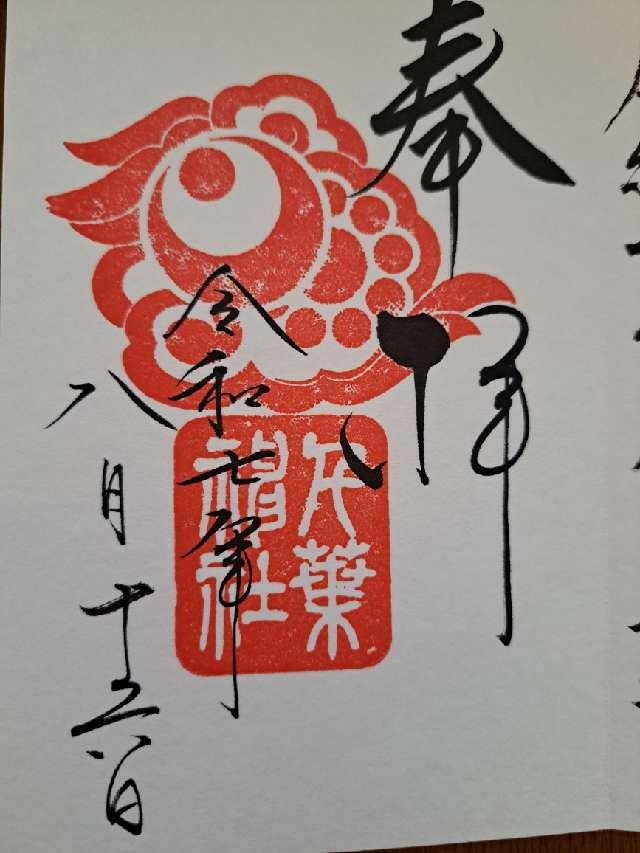 奉拝
千葉
神社
令和七年
八月十六日